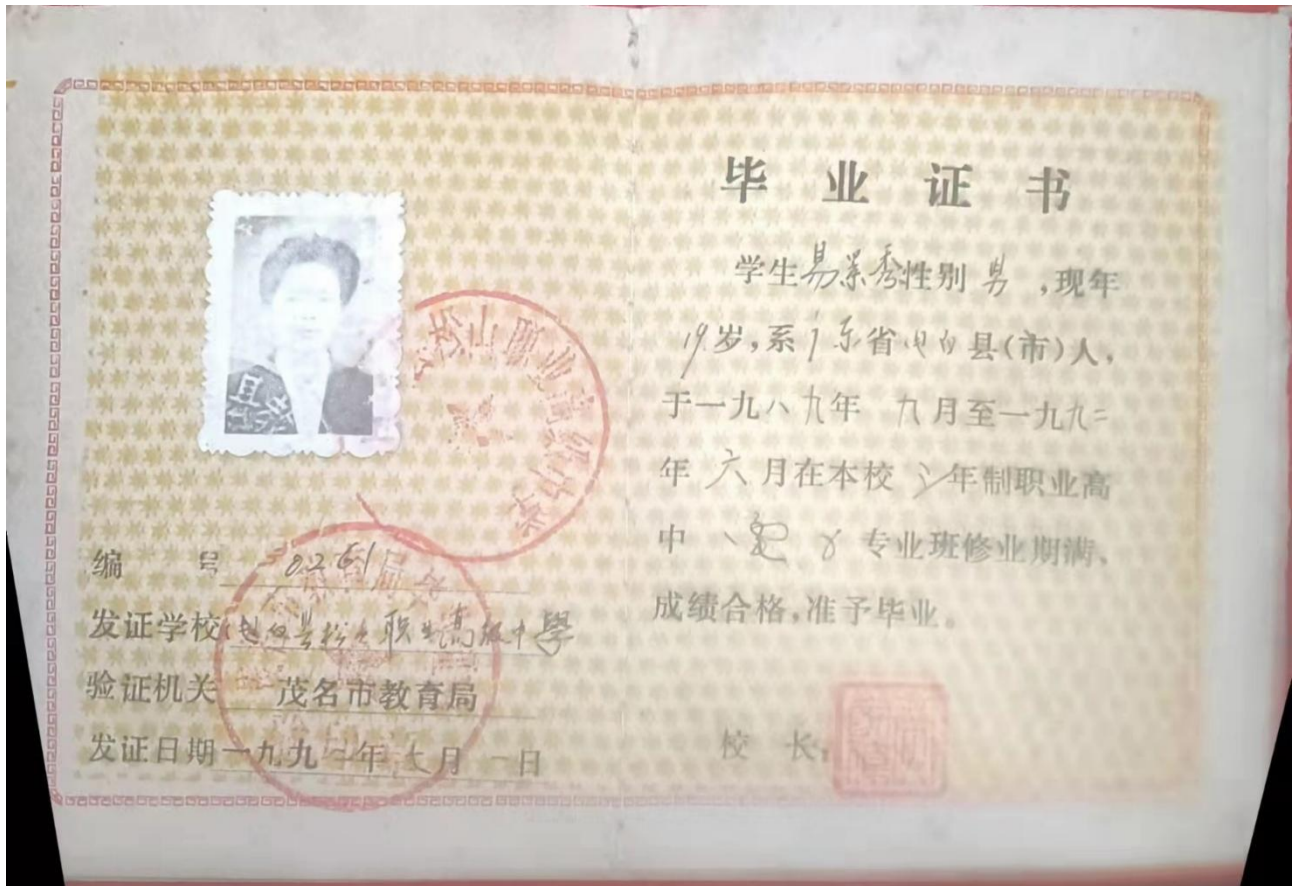 毕业证书
学生易業秀性别男，现年
19岁，系广东省电白县(市)人，
于一九八九年 九月至一九九二
年六月在本校三年制职业高
中 专业班修业期满、
成绩合格，准予毕业。
校 长：
山职业高级中学
编 号 0261
发证学校电白县松山职业高级中學
验证机关 茂名市教育局
发证日期一九九二年七月一日